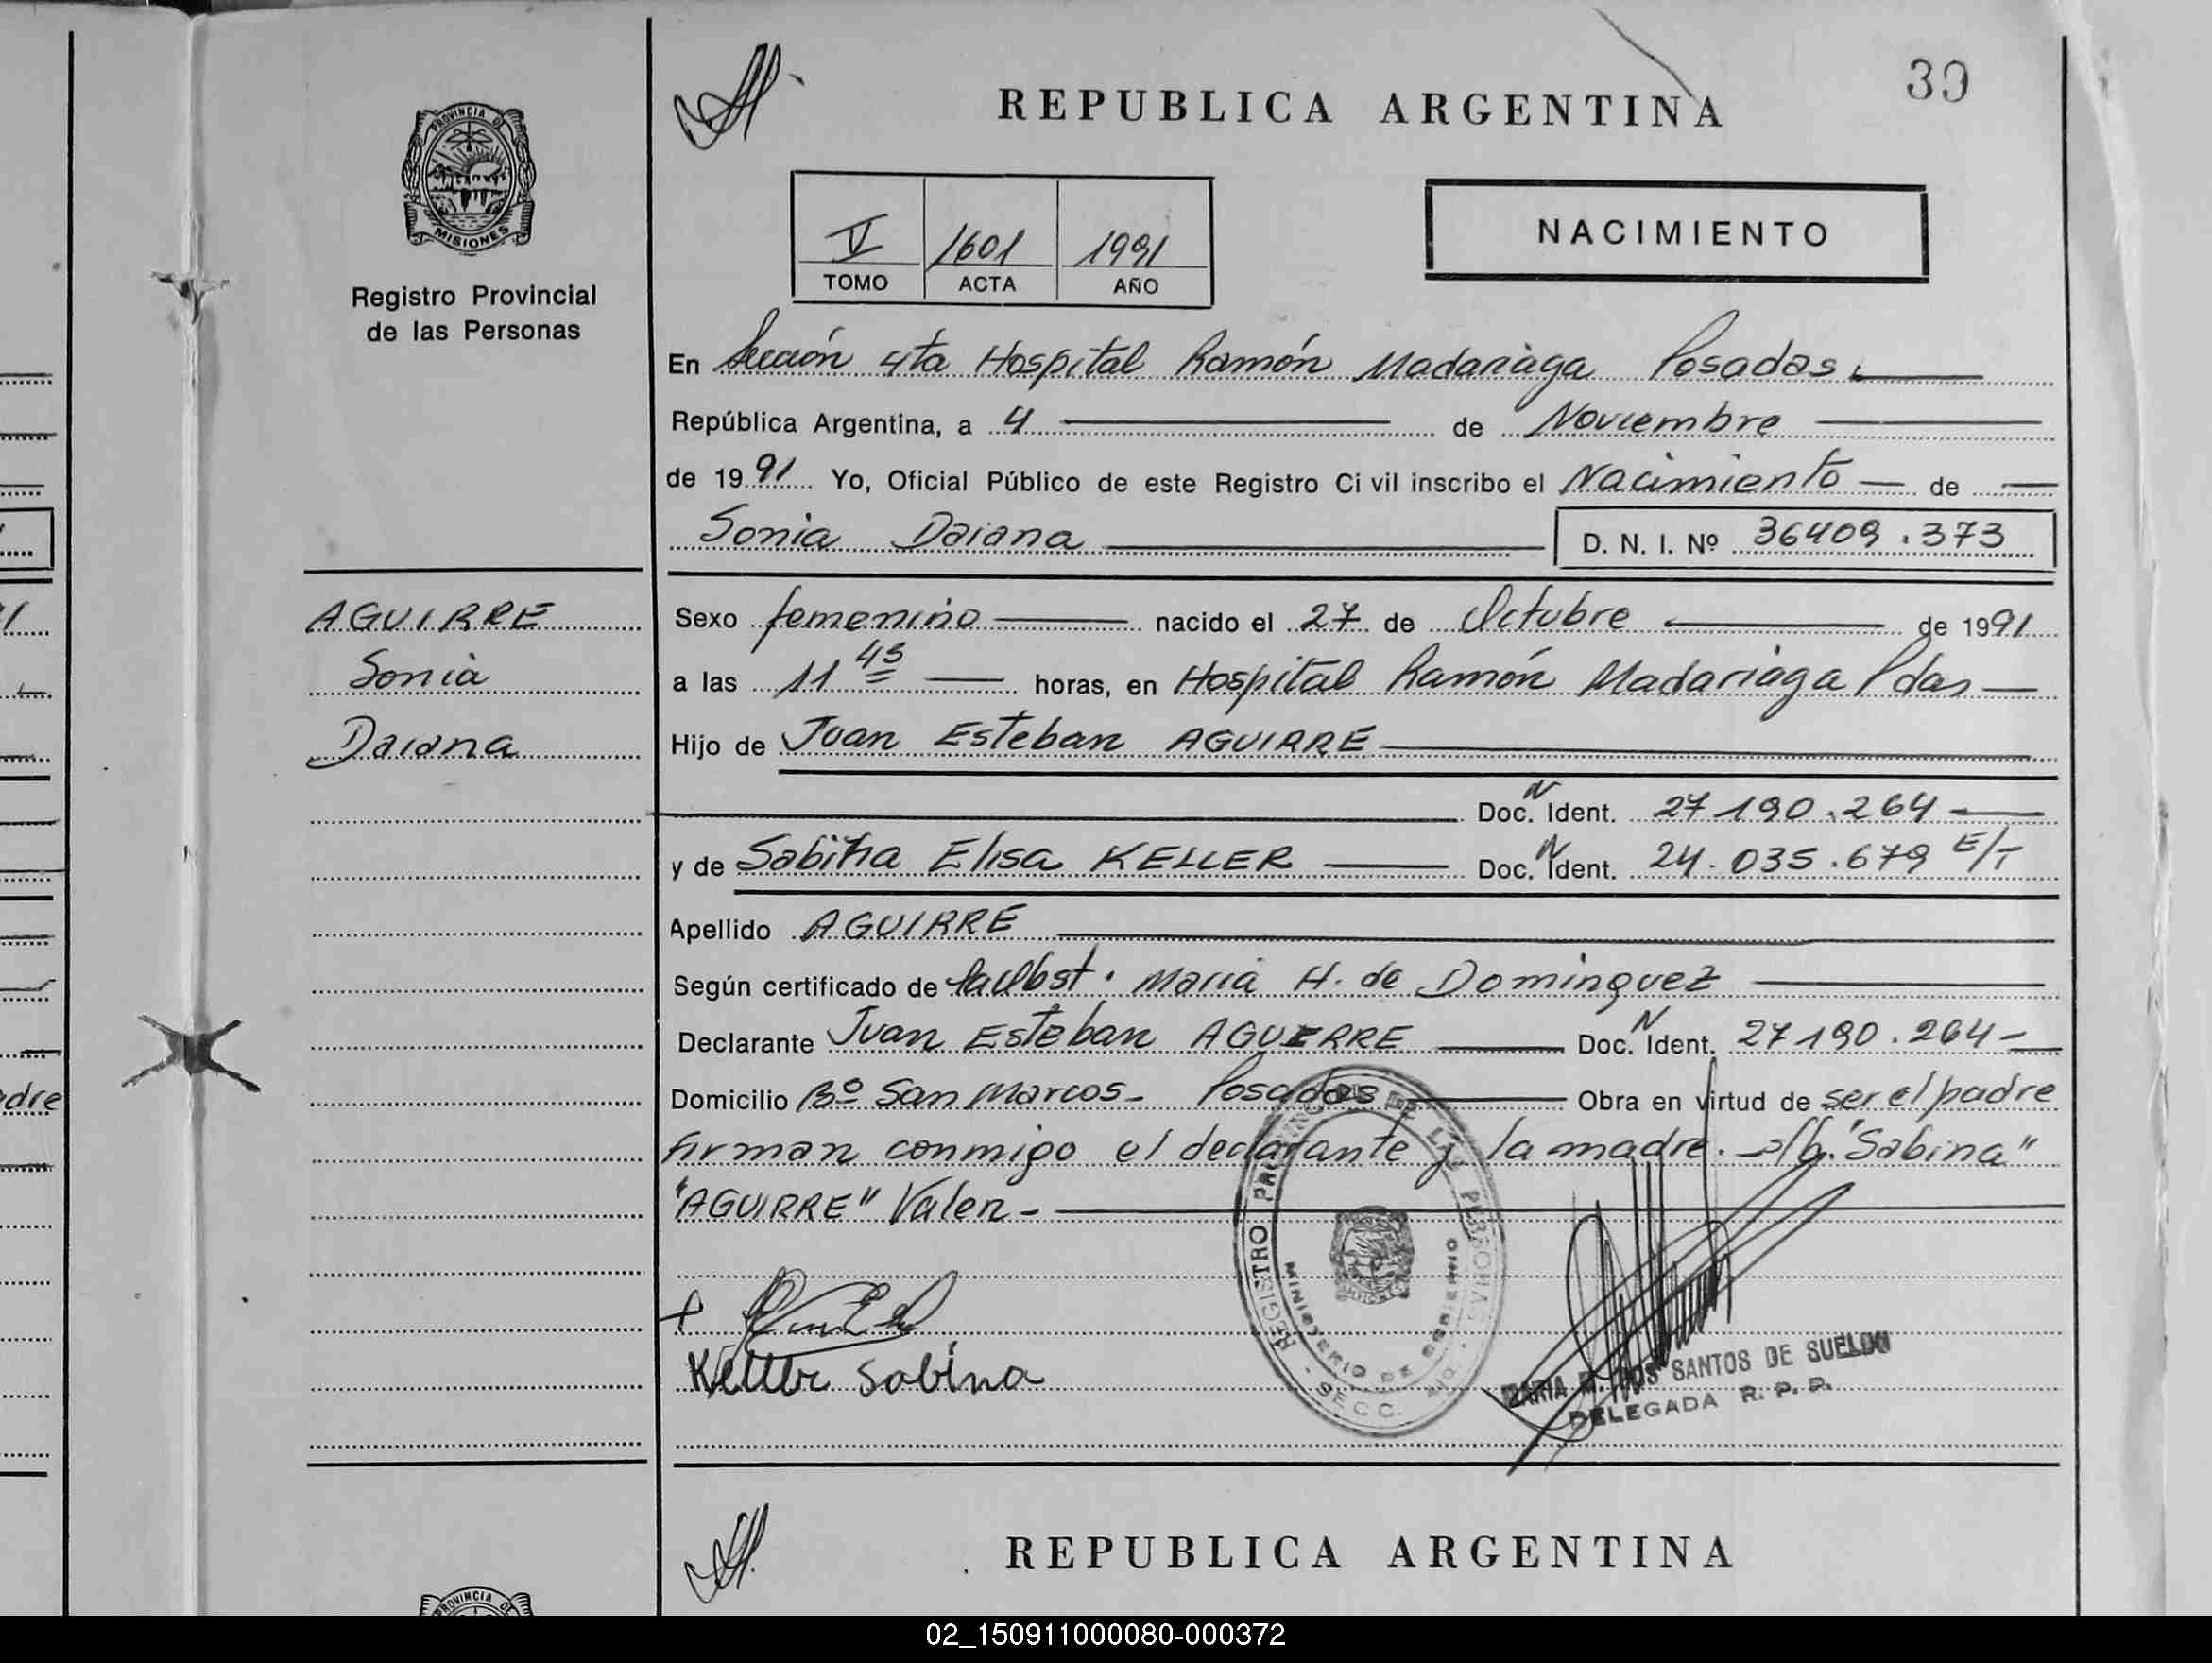 39
REPUBLICA ARGENTINA
PROVINCIA DE
MISIONES
Registro Provincial
de las Personas
V 1601 1991
TOMO ACTA AÑO
NACIMIENTO
En Sección 4ta Hospital Ramón Madariaga Posadas
República Argentina, a 4 de Noviembre
de 1991 Yo, Oficial Público de este Registro Civil inscribo el Nacimiento de
Sonia Daiana D. N. I. Nº 36409.373
AGUIRRE
Sonia
Daiana
Sexo femenino nacido el 27 de Octubre de 1991
a las 11 45 horas, en Hospital Ramón Madariaga Pdas
Hijo de Juan Esteban AGUIRRE
Doc. N Ident. 27190.264
y de Sabina Elisa KELLER Doc. N Ident. 24.035.679 E/T
Apellido AGUIRRE
Según certificado de Maria H. de Dominguez
Declarante Juan Esteban AGUIRRE Doc. N Ident. 27190.264
Domicilio Bº San Marcos - Posadas Obra en virtud de ser el padre
firman conmigo el declarante y la madre. s/b. "Sabina"
"AGUIRRE" Valen -
REGISTRO PROVINCIAL DE LAS PERSONAS
MINISTERIO DE GOBIERNO
SECC.
Keller Sabina
MARIA M. DOS SANTOS DE SUELDO
DELEGADA R. P. P.
REPUBLICA ARGENTINA
PROVINCIA DE
adre
02_150911000080-000372